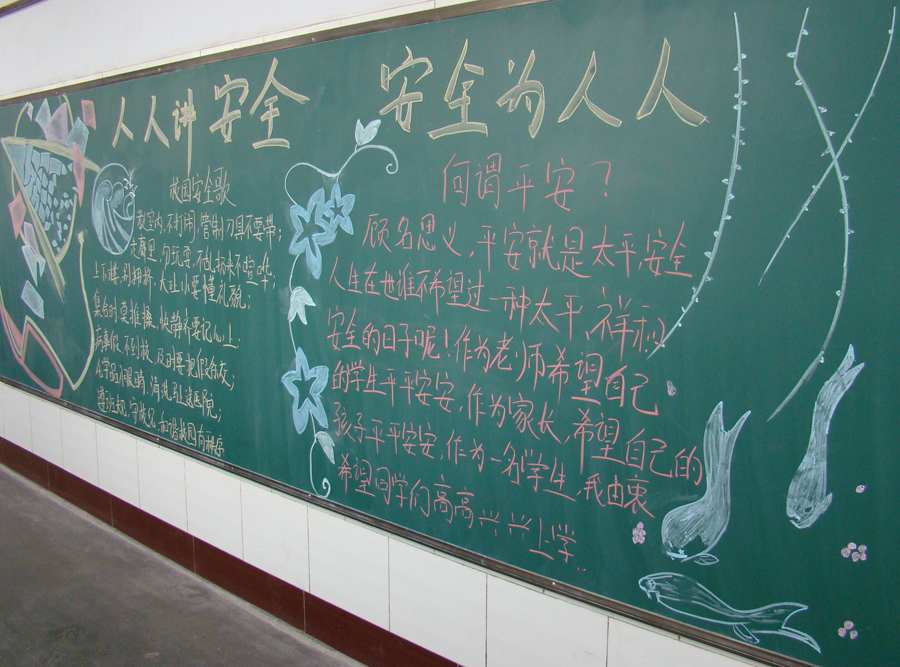 人人讲安全 安全为人人
校园安全歌
教室内,不打闹,管制刀具不要带;
走廊里,勿玩耍,不乱扔来不喧哗;
上下楼,别拥挤,大让小要懂礼貌;
集合时,莫推搡,快静齐要记心上;
病事假,不到校,及时要把假条交;
化学品,
遵
何谓平安?
顾名思义,平安就是太平,安全
人生在世谁不希望过一种太平,祥和
安全的日子呢!作为老师希望自己
的学生平平安安,作为家长,希望自己的
孩子平平安安,作为一名学生,我由衷
希望同学们高高兴兴上学..